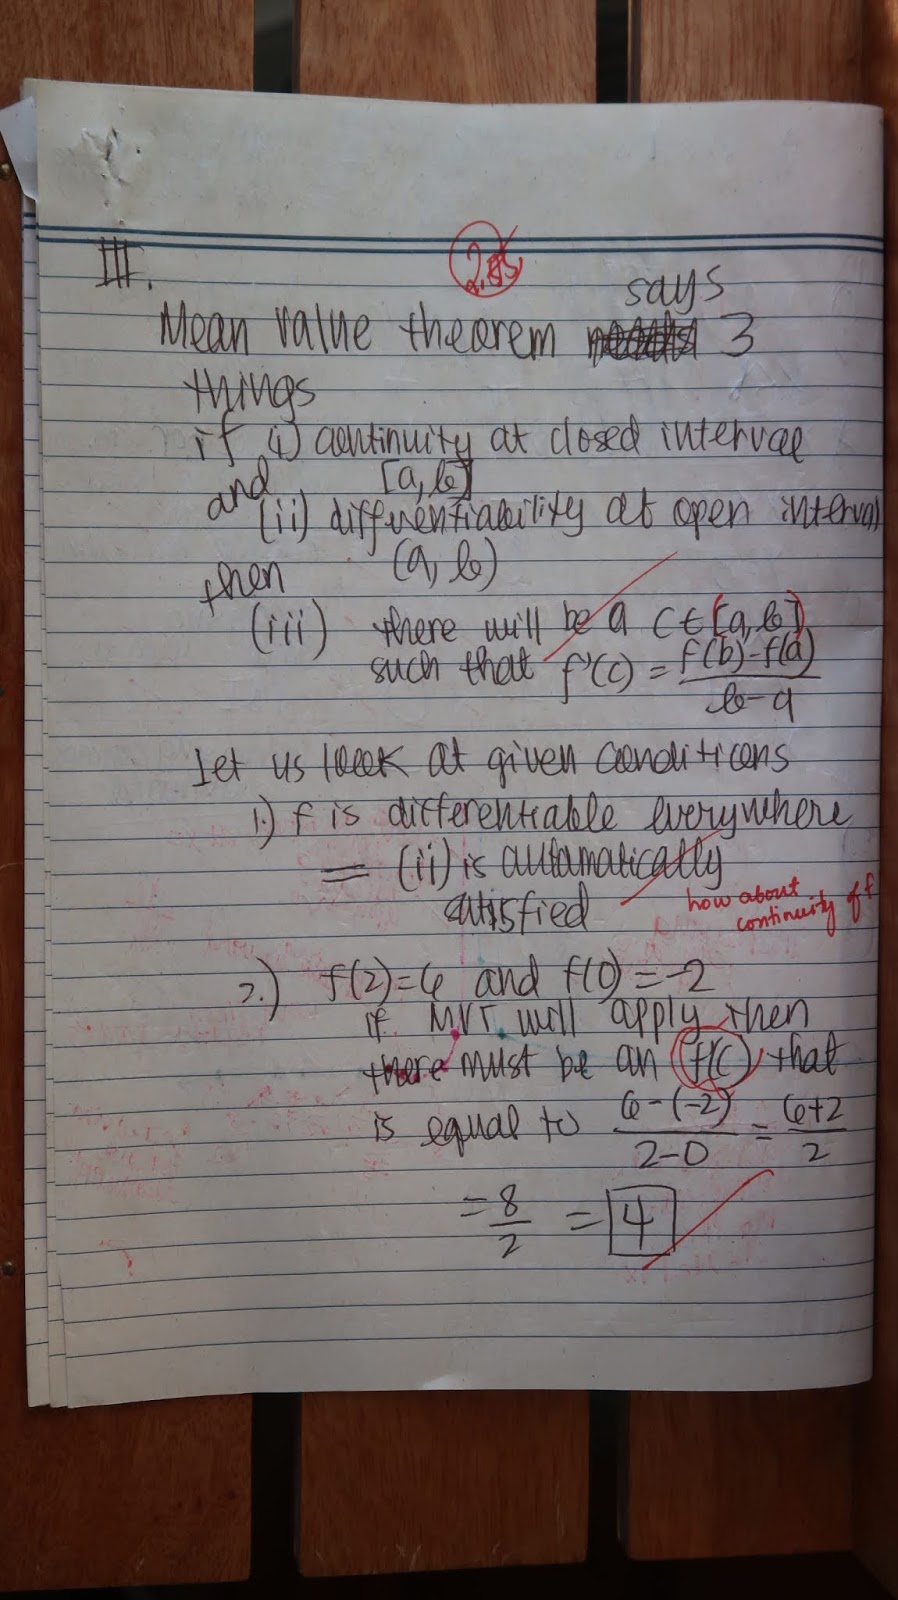 III.
says
Mean value theorem 3
things
if (i) continuity at closed interval
and [a,b]
(ii) differentiability at open interval
then (a,b)
(iii) there will be a c∈[a,b]
such that f'(c) = f(b)-f(a) / b-a
Let us look at given conditions
1.) f is differentiable everywhere
= (ii) is automatically
satisfied
how about
continuity of f
2.) f(2)=6 and f(0)=-2
if MVT will apply then
there must be an f'(c) that
is equal to 6-(-2) / 2-0 = 6+2 / 2
= 8/2 = 4